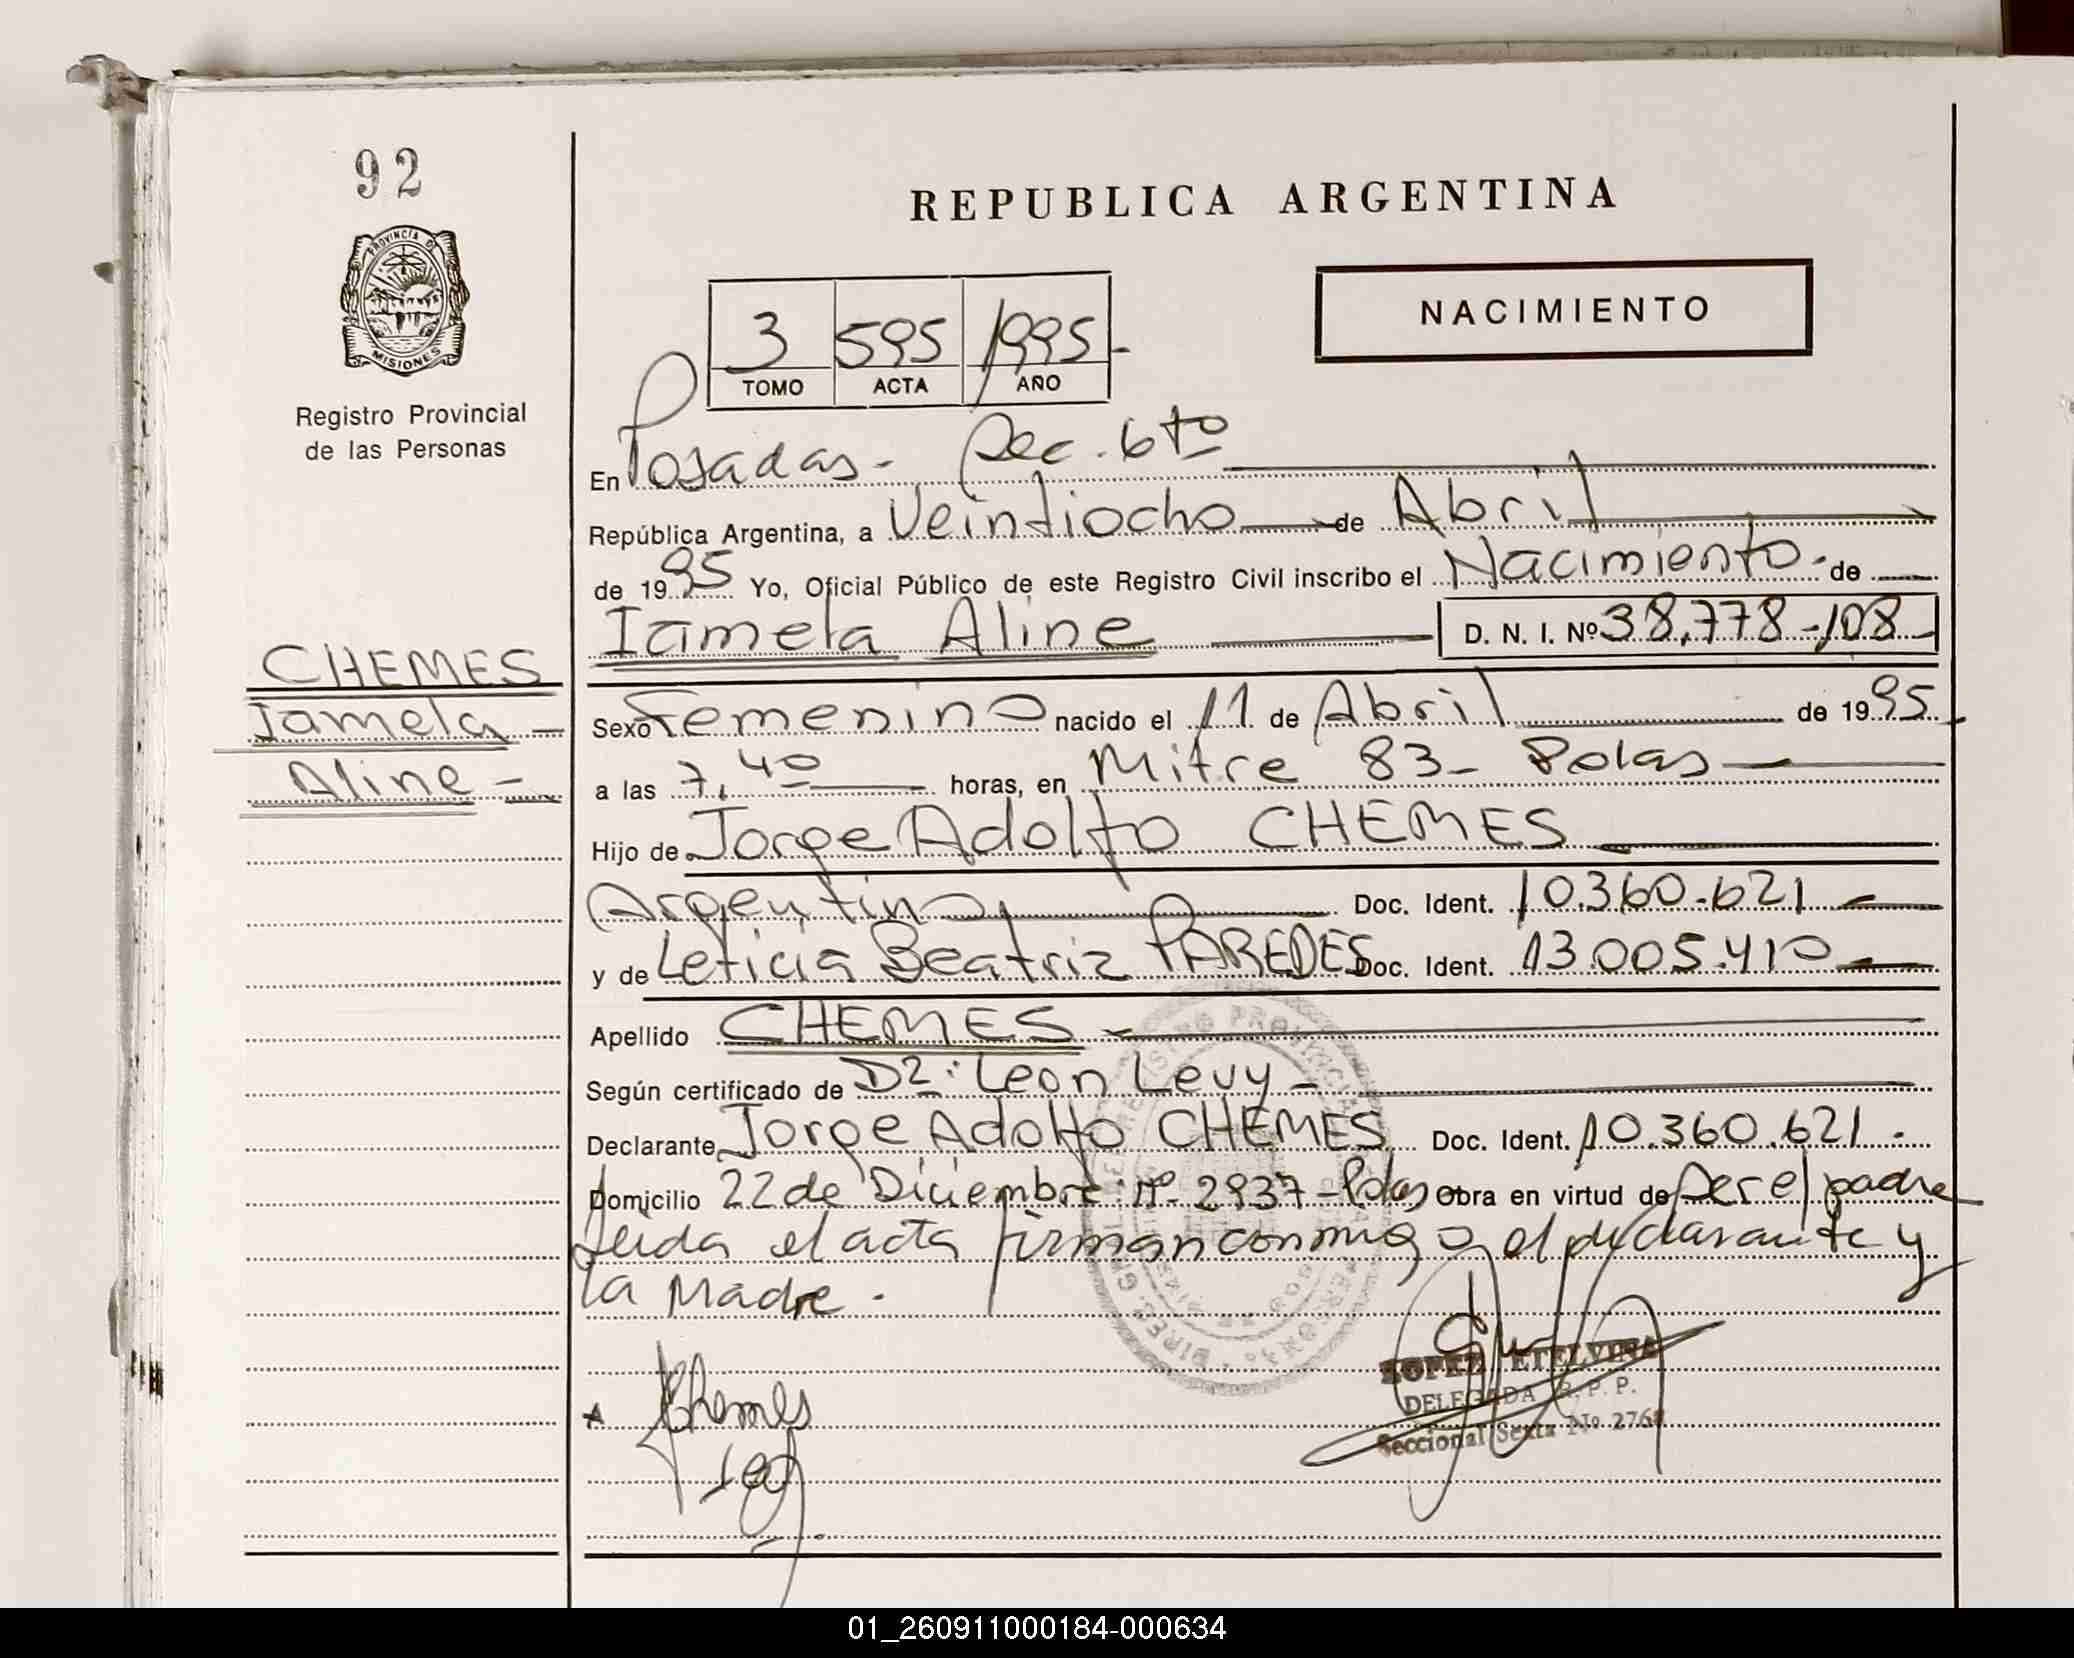 92
PROVINCIA DE
MISIONES
Registro Provincial
de las Personas
CHEMES
Iamela -
Aline -
REPUBLICA ARGENTINA
NACIMIENTO
3 595 1995-
TOMO ACTA AÑO
En Posadas- Sec. 6to
República Argentina, a Veintiocho de Abril
de 1995 Yo, Oficial Público de este Registro Civil inscribo el Nacimiento- de
Iamela Aline D. N. I. Nº 38.778-108
Sexo Femenino nacido el 11 de Abril de 1995
a las 7,40 horas, en Mitre 83- Pdas
Hijo de Jorge Adolfo CHEMES
Argentino, Doc. Ident. 10.360.621
y de Leticia Beatriz PAREDES Doc. Ident. 13.005.410
Apellido CHEMES
Según certificado de Dr: Leon Levy-
Declarante Jorge Adolfo CHEMES Doc. Ident. 10.360.621.
Domicilio 22 de Diciembre nº 2937-Pdas Obra en virtud de ser el padre
Leida el acta firman conmigo el declarante y
la Madre.
Chemes
LOPEZ ETELVINA
DELEGADA R.P.P.
Seccional Sexta Nº 276
01_260911000184-000634